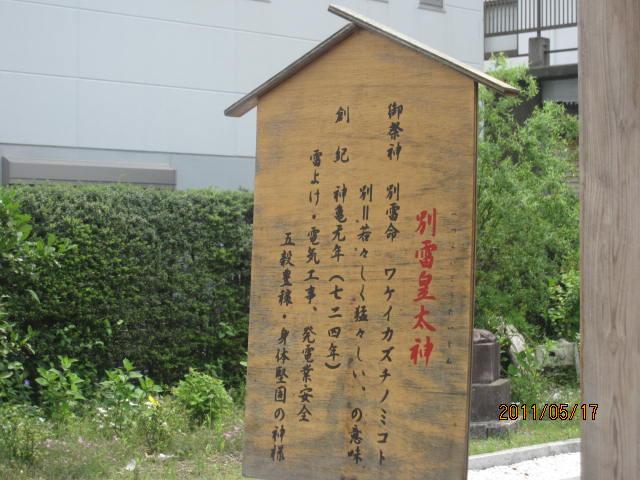 別雷皇太神
御祭神 別雷命 ワケイカズチノミコト
別=若々しく猛々しい、の意味
創紀 神亀元年(七二四年)
雷よけ・電気工事、発電業安全
五穀豊穣・身体堅固の神様
2011/05/17